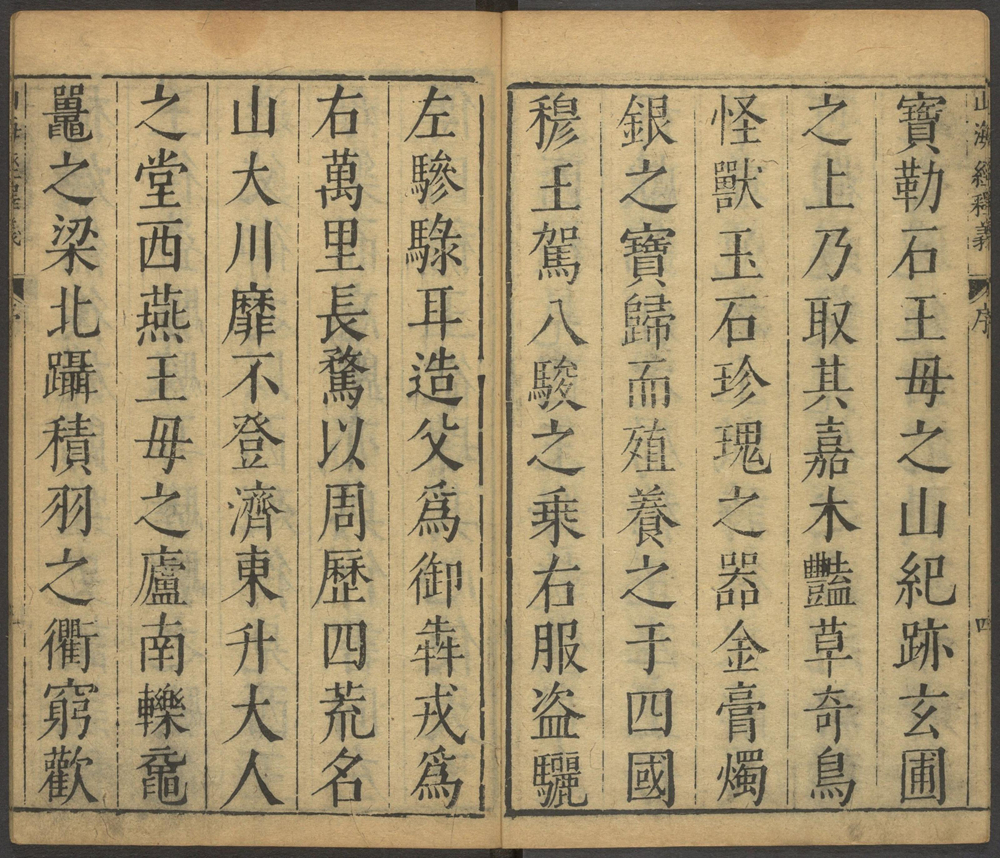 山海經釋義
序
四
寶勒石王母之山紀跡玄圃
之上乃取其嘉木豔草奇鳥
怪獸玉石珍瑰之器金膏燭
銀之寶歸而殖養之于四國
穆王駕八駿之乗右服盗驪
左驂騄耳造父爲御犇戎爲
右萬里長騖以周歷四荒名
山大川靡不登濟東升大人
之堂西燕王母之廬南轢黿
鼉之梁北躡積羽之衢窮歡